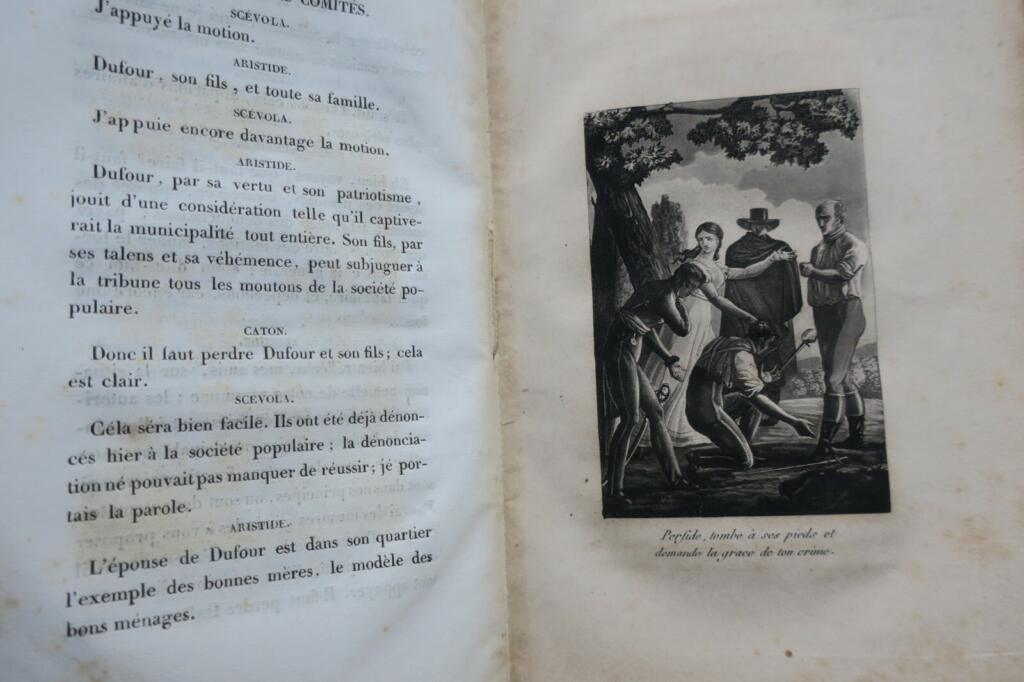 COMITÉS.
SCÉVOLA.
J'appuyé la motion.
ARISTIDE.
Dufour, son fils, et toute sa famille.
SCÉVOLA.
J'appuie encore davantage la motion.
ARISTIDE.
Dufour, par sa vertu et son patriotisme,
jouit d'une considération telle qu'il captive-
rait la municipalité tout entière. Son fils, par
ses talens et sa véhémence, peut subjuguer à
la tribune tous les moutons de la société po-
pulaire.
CATON.
Donc il faut perdre Dufour et son fils; cela
est clair.
SCEVOLA.
Céla séra bien facile. Ils ont été déjà dénon-
cés hier à la société populaire; la dénoncia-
tion né pouvait pas manquer de réussir; jé por-
tais la parole.
ARISTIDE.
L'éponse de Dufour est dans son quartier
l'exemple des bonnes mères, le modèle des
bons ménages.
Perfide, tombe à ses pieds et
demande la grace de ton crime.